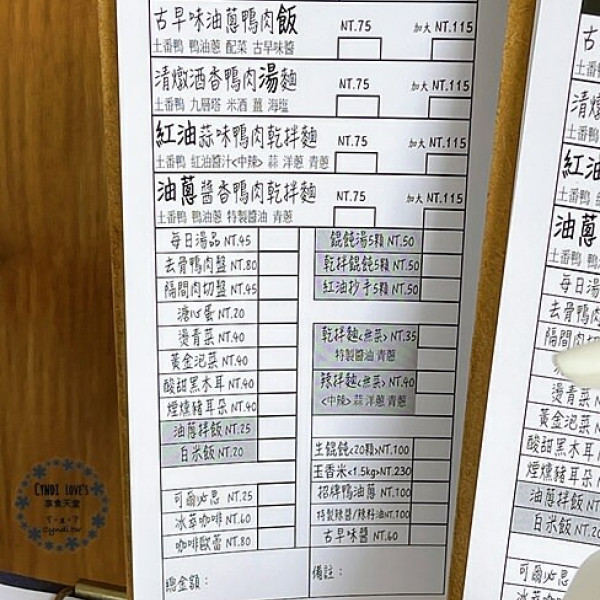 古早味油蔥鴨肉飯 NT.75 加大 NT.115
土番鴨 鴨油蔥 配菜 古早味醬
清燉酒香鴨肉湯麵 NT.75 加大 NT.115
土番鴨 九層塔汁米酒 薑 海塩
紅油蒜味鴨肉乾拌麵 NT.75 加大 NT.115
土番鴨 紅油醬汁<中辣> 蒜 洋蔥 青蔥
油蔥醬香鴨肉乾拌麵 NT.75 加大 NT.115
土番鴨 鴨油蔥 特製醬油 青蔥
每日湯品 NT.45
去骨鴨肉盤 NT.80
隔間肉切盤 NT.45
溏心蛋 NT.20
燙青菜 NT.40
黃金泡菜 NT.40
酸甜黑木耳 NT.40
煙燻豬耳朵 NT.40
油蔥拌飯 NT.25
白米飯 NT.20
可爾必思 NT.25
冰萃咖啡 NT.60
咖啡歐蕾 NT.80
總金額：
餛飩湯5顆 NT.50
乾拌餛飩5顆 NT.50
紅油抄手5顆 NT.50
乾拌麵<無菜> NT.35
特製醬油 青蔥
辣拌麵<無菜> NT.40
<中辣> 蒜 洋蔥 青蔥
生餛飩<20顆> NT.100
玉香米<1.5kg> NT.230
招牌鴨油蔥 NT.100
特製辣醬/辣料油 NT.100
古早味醬 NT.60
備註：
古
土番鴨
清燉
土番鴨
紅油
土番鴨
油蔥
土番鴨 鴨
每日湯
去骨鴨肉
隔間肉
燙青菜
黃金泡菜
酸甜黑木耳
煙燻豬耳朵
油蔥拌飯 N
白米飯 NT.20
可爾必思
冰萃咖啡
CYNDI LOVE'S
享食天堂
Cyndi.tw